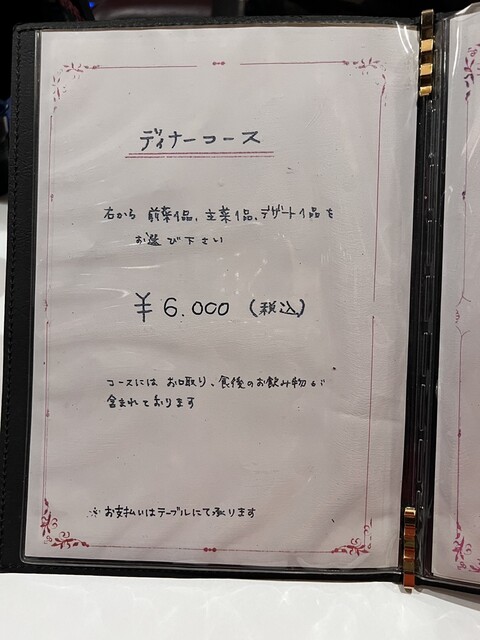 ディナーコース
右から 前菜1品、主菜1品、デザート1品を
お選び下さい
¥6.000 (税込)
コースには お口取り、食後のお飲み物が
含まれております
※お支払いはテーブルにて承ります